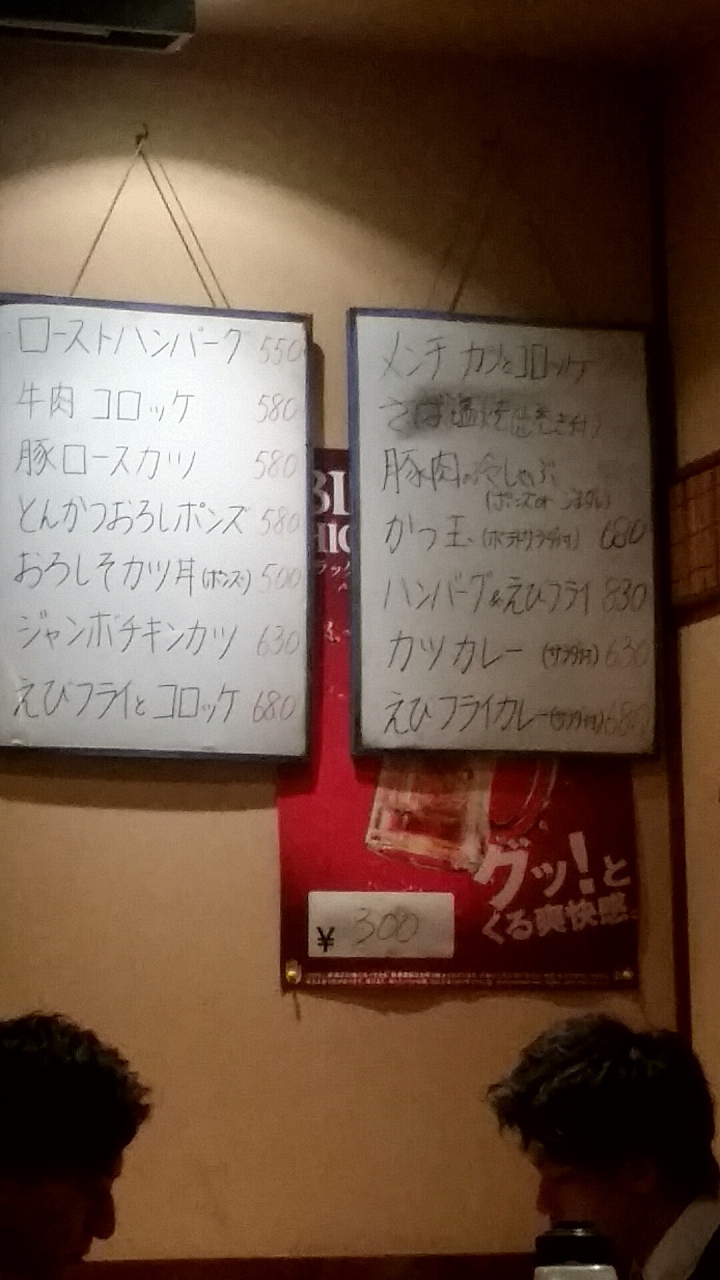 ローストハンバーグ 550
牛肉 コロッケ 580
豚ロースカツ 580
とんかつおろしポンズ 580
おろしそカツ丼(ポンズ) 500
ジャンボチキンカツ 630
えびフライと コロッケ 680
メンチ カツとコロッケ
さば塩焼
豚肉の冷しゃぶ
(ポンズor ごまダレ)
かつ玉 (ポテトサラダ付) 680
ハンバーグ&えびフライ 830
カツ カレー (サラダ付) 630
えび フライカレー(サラダ付) 680
グッ!と
くる爽快感。
¥ 300